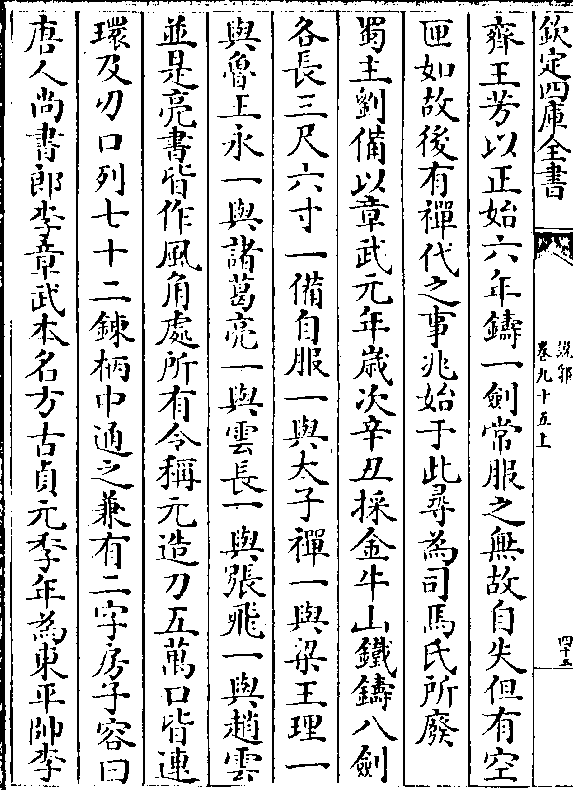 欽定四庫全書
説郛
卷九十五上
四十五
齊王芳以正始六年鑄一劍常服之無故自失但有空
匣如故後有禪代之事兆始于此尋為司馬氏所廢
蜀主劉備以章武元年歲次辛丑採金牛山鐵鑄八劍
各長三尺六寸一備自服一與太子禪一與梁王理一
與魯王永一與諸葛亮一與雲長一與張飛一與趙雲
並是亮書皆作風角處所有令稱元造刀五萬口皆連
環及刃口列七十二鍊柄中通之兼有二字房子容曰
唐人尚書郎李章武本名方古貞元季年為東平帥李